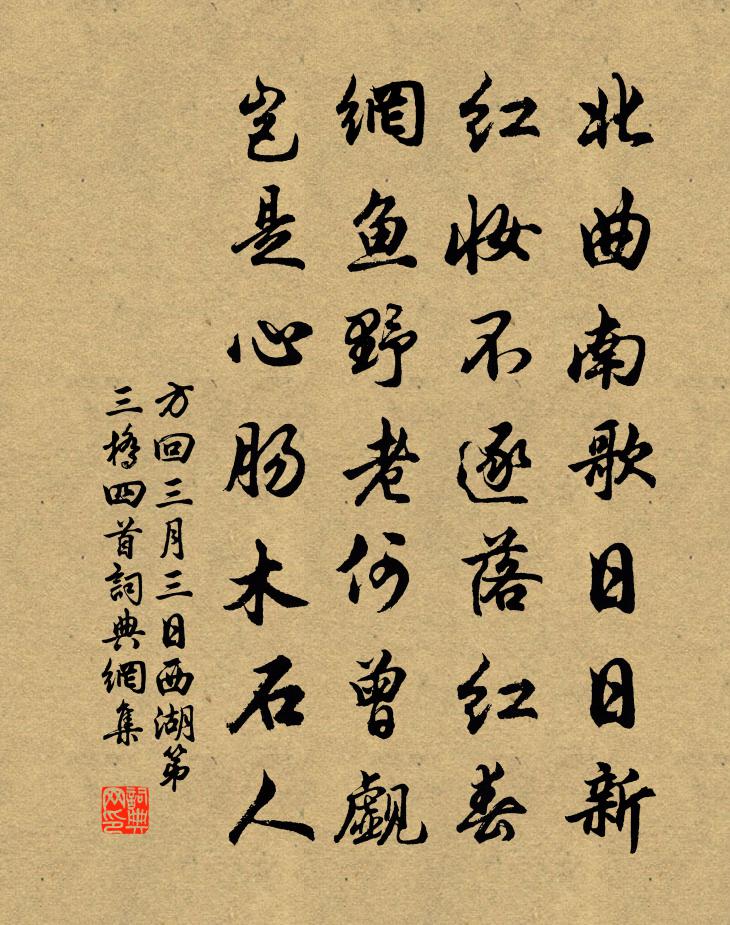 北曲南歌日日新
红妆不逐落红春
網鱼野老何曾觑
岂是心肠木石人
方回三月三日西湖第
三桥四首詞典網集
詞典网印